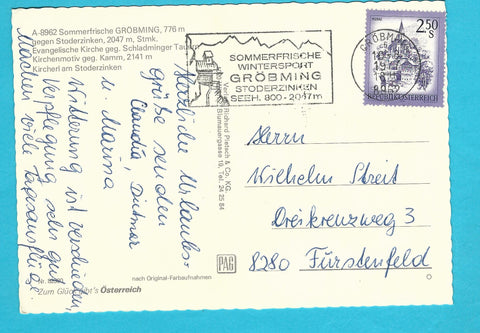 A-8962 Sommerfrische GRÖBMING, 776 m
gegen Stoderzinken, 2047 m, Stmk.
Evangelische Kirche geg. Schladminger Tauern
Kirchenmotiv geg. Kamm, 2141 m
Kircherl am Stoderzinken
SOMMERFRISCHE
WINTERSPORT
GRÖBMING
STODERZINKEN
SEEH. 800-2047m
GRÖBMING
8962
2.50
S
REPUBLIK ÖSTERREICH
Herzliche Urlaubs-
grüße senden
Claudia, Dietmar
u. Marina
Witterung ist verschieden,
Verpflegung sehr gut
Machen viele Tagesausflüge.
Herrn
Wilhelm Streit
Dreikreuzweg 3
8280 Fürstenfeld
Richard Pietsch & Co. KG.
Blumauergasse 19, Tel. 24 25 84
PAG
nach Original-Farbaufnahmen
Zum Glück gibt's Österreich